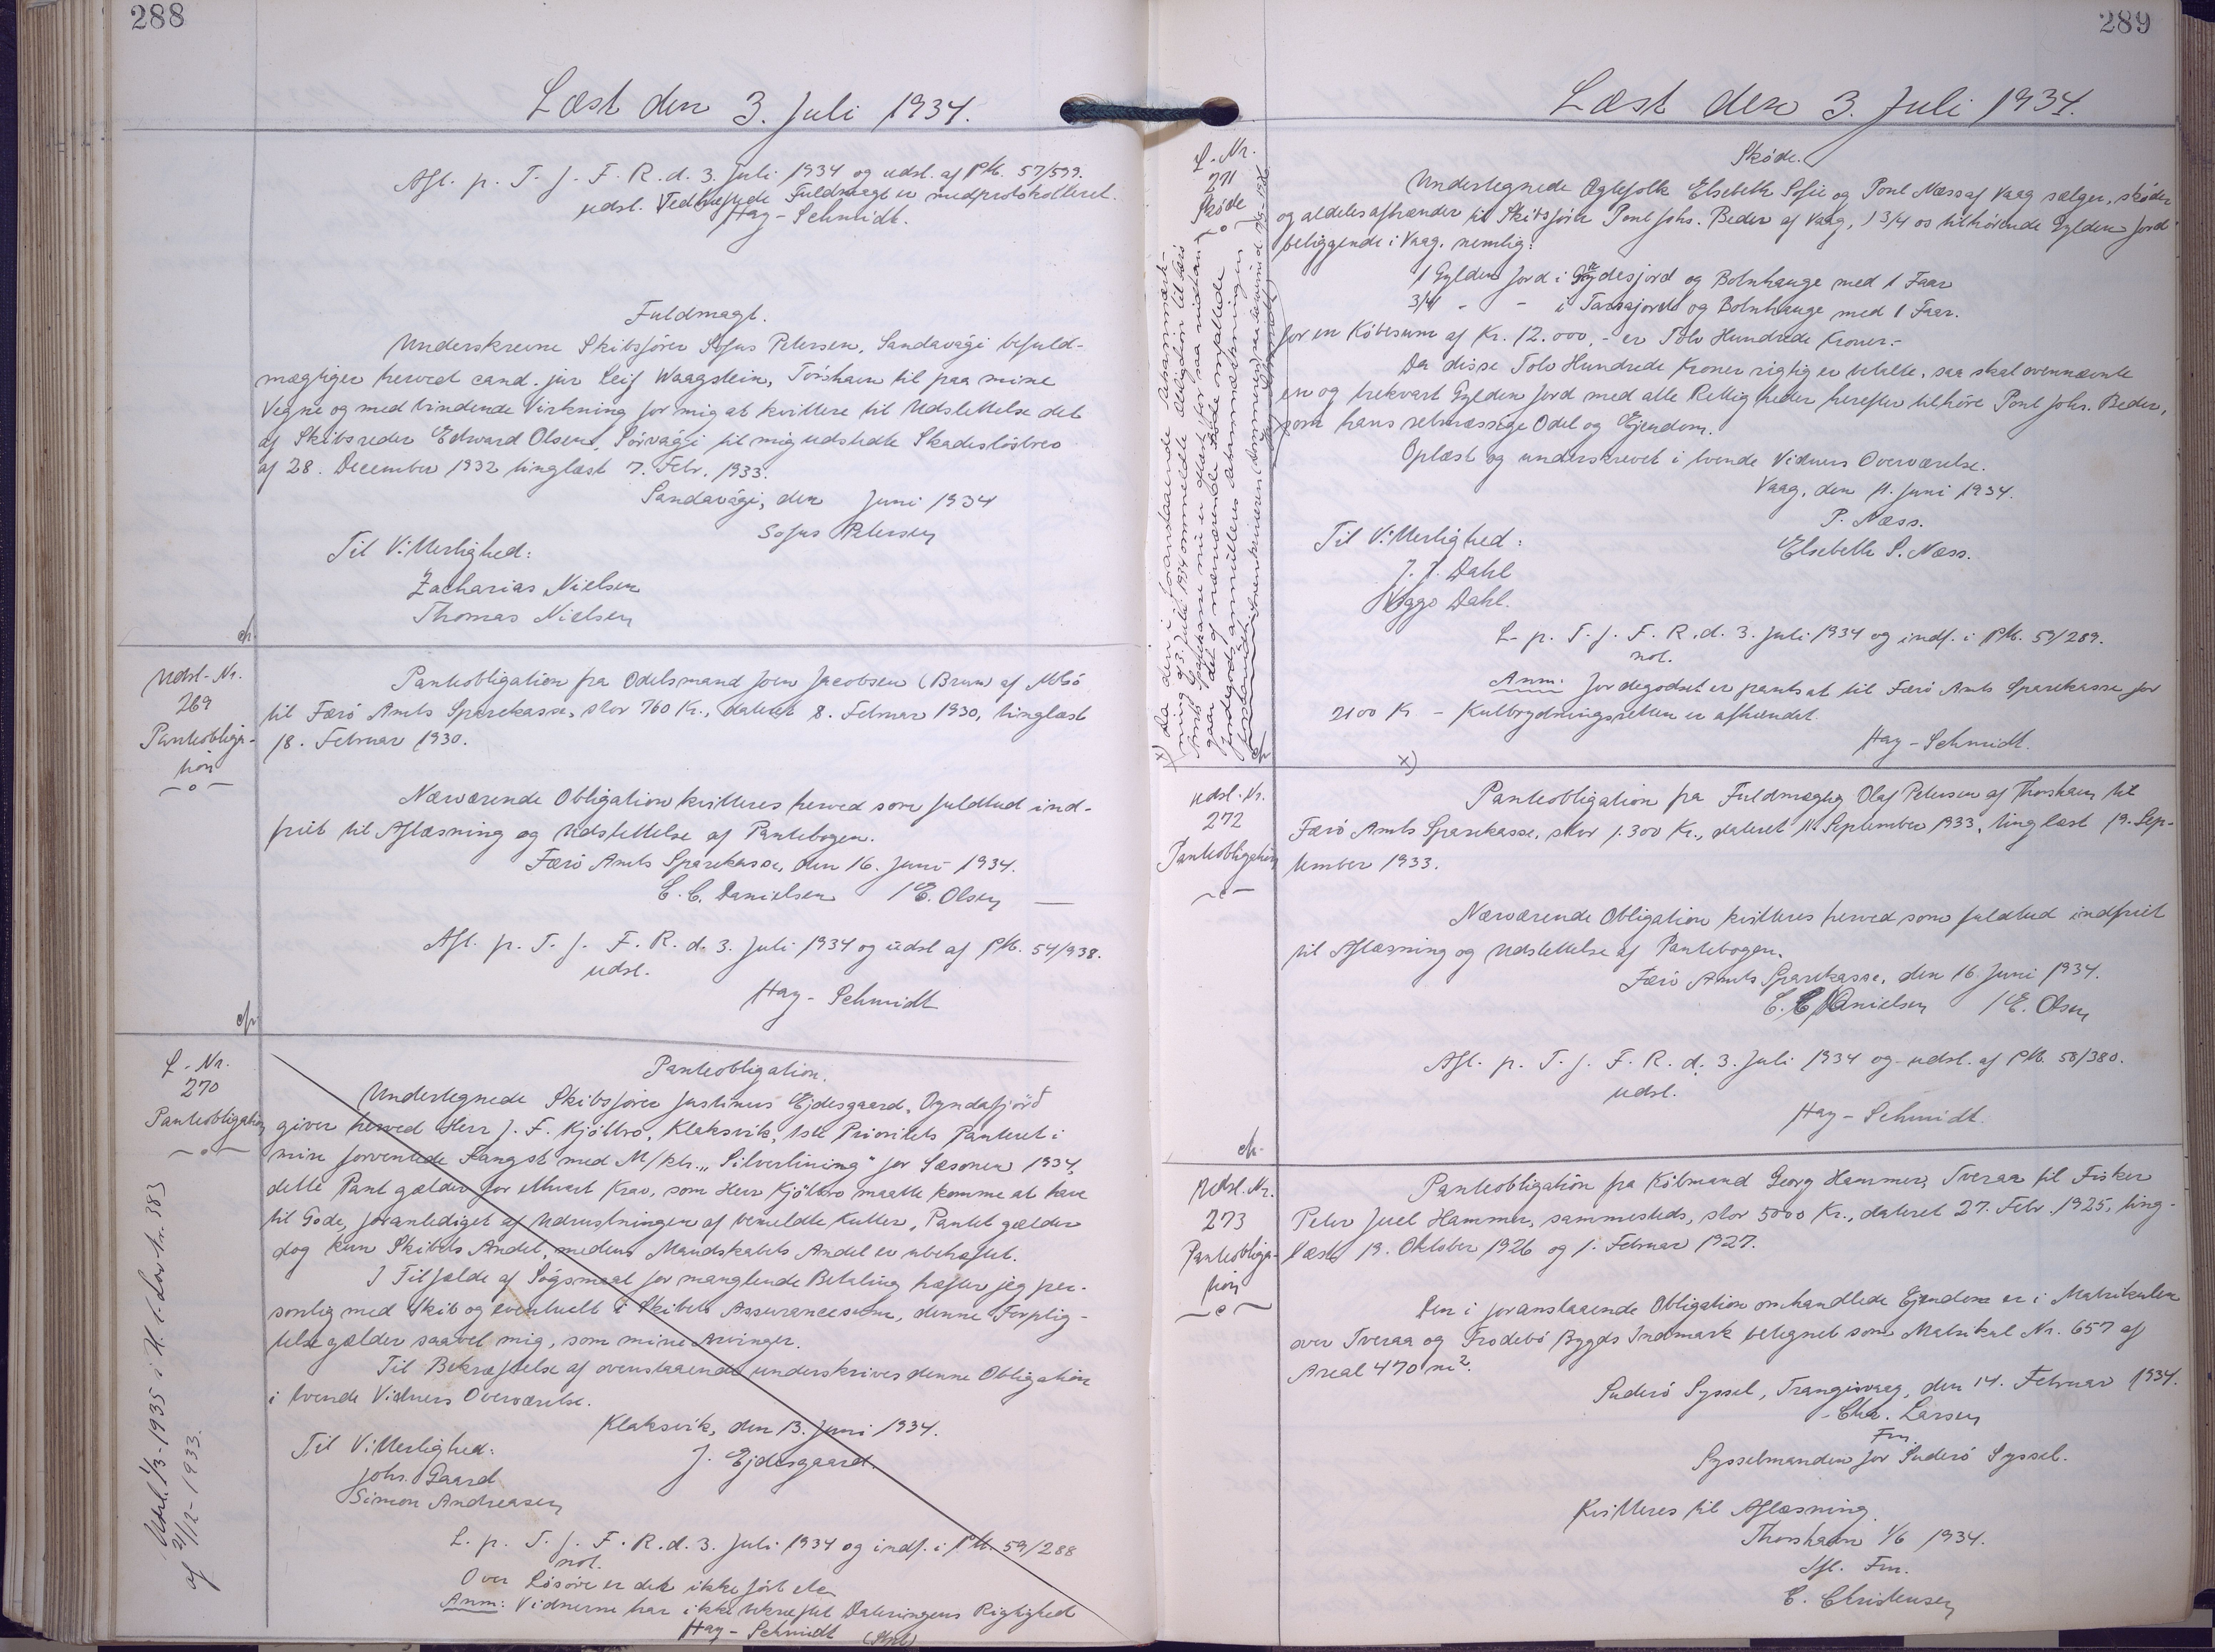 288
Læst den 3. Juli 1934.
Afl. p. T. f. F. R. d. 3. Juli 1934 og udsl. af Ptb. 57/599.
udsl. Vedhæftede Fuldmagt er medprotokolleret.
Hay-Schmidt.
Fuldmagt.
Underskrevne Skibsfører Sofus Petersen, Sandavági befuld-
mægtiger herved cand. jur Leif Waagstein, Tórshavn til paa mine
Vegne og med bindende Virkning for mig at kvittere til Udslettelse det
af Skibsreder Edward Olsen, Sörvági til mig udstedte Skadesløsbrev
af 28. December 1932 tinglæst 7. Febr. 1933.
Sandavági, den Juni 1934
Sofus Petersen
Til Vitterlighed:
Zacharias Nielsen
Thomas Nielsen
Udsl-Nr.
269
Panteobliga-
tion
Panteobligation fra Odelsmand Joen Jacobsen (Brun) af
til Færö Amts Sparekasse, stor 760 Kr., dateret 8. Februar 1930, tinglæst
18. Februar 1930.
Nærværende Obligation kvitteres herved som fuldtud ind-
friet til Aflæsning og Udslettelse af Pantebogen.
Færö Amts Sparekasse, den 16. Juni 1934.
C. C. Danielsen / E. Olsen
Afl. p. T. f. F. R. d. 3. Juli 1934 og udsl af Ptb. 54/938.
udsl.
Hay-Schmidt
L. Nr.
270
Panteobligation
Panteobligation.
Undertegnede Skibsfører Justinus Ejdesgaard, Oyndafjörð
giver herved Herr J. F. Kjölbro, Klaksvik, 1ste Prioritets Panteret i
min forventede Fangst med M/ktr. "Silverlining" for Sæsonen 1934,
dette Pant gælder for ethvert Krav, som Herr Kjölbro maatte komme at have
til Gode, foranlediget af Udrustningen af bemeldte Kutter, Pantet gælder
dog kun Skibets Andel, medens Mandskabets Andel er ubehæftet.
I Tilfælde af Søgsmaal for manglende Betaling hæfter jeg per-
sonlig med Skib og eventuelt i Skibets Assurancesum, denne Forplig-
telse gælder saavel mig, som mine Arvinger.
Til Bekræftelse af ovenstaaende underskrives denne Obligation
i tvende Vidners Overværelse.
Klaksvik, den 13. Juni 1934.
Til Vitterlighed:
J. Ejdesgaard.
Johs. Gaard
Simon Andreasen
L. p. T. f. F. R. d. 3. Juli 1934 og indf. i Ptb. 59/288
not.
Over Løsøre er det ikke ført
Anm: Vidnerne har ikke bekræftet Dateringens Rigtighed
Hay-Schmidt
Udsl. 1/3-1935 i H. t. Lov Nr. 383
af 21/12-1933.
289
Læst den 3. Juli 1934.
L. Nr.
271
Skøde
Skøde.
Undertegnede Ægtefolk Elsebeth Sofie og Poul Næss af Vaag sælger, skøder
og aldeles afhænder til Skibsfører Poul Johs. Beder af Vaag, 1 3/4 os tilhörende Gylden Jord
beliggende i Vaag, nemlig:
1 Gylden Jord i og Bolnhauge med 1 Faar
3/4 - - i og Bolnhauge med 1 Faar.
for en Købesum af Kr. 12.000,- er Tolv Hundrede Kroner.-
Da disse Tolv Hundrede Kroner rigtig er betalte, saa skal ovennævnte
en og trekvart Gylden Jord med alle Rettigheder herefter tilhöre Poul Johs. Beder,
som hans retmæssige Odel og Ejendom.
Oplæst og underskrevet i tvende Vidners Overværelse.
Vaag, den 11. Juni 1934.
P. Næss.
Til Vitterlighed:
Elsebeth S. Næss.
J. J. Dahl
Viggo Dahl.
L. p. T. f. F. R. d. 3. Juli 1934 og indf. i Ptb. 59/289.
not.
Anm: Jordegodset er pantsat til Færö Amts Sparekasse for
2100 Kr - Kulbrydningsretten er afhændet.
Hay-Schmidt.
x)
x) Da den i foranstaaende
Udsl. Nr.
272
Panteobligation
Panteobligation fra Fuldmægtig Olaf Petersen af Thorshavn til
Færö Amts Sparekasse, stor 1.300 Kr., dateret 11. September 1933, tinglæst 19. Sep-
tember 1933.
Nærværende Obligation kvitteres herved som fuldtud indfriet
til Aflæsning og Udslettelse af Pantebogen.
Færö Amts Sparekasse, den 16. Juni 1934.
C. C. Danielsen / E. Olsen
Afl. p. T. f. F. R. d. 3. Juli 1934 og udsl. af Ptb. 58/380.
udsl.
Hay-Schmidt.
Udsl. Nr.
273
Panteobliga-
tion
Panteobligation fra Købmand Georg Hammer, Tveraa til Fisker
Peter Juel Hammer, sammesteds, stor 5000 Kr., dateret 27. Febr. 1925, ting-
læst 19. Oktober 1926 og 1. Februar 1927.
Den i foranstaaende Obligation omhandlede Ejendom er i Matrikulen
over Tveraa og Frodebö Bygds Indmark betegnet som Matrikul Nr. 657 af
Areal 470 m².
Suderö Syssel, Trangisvaag, den 14. Februar 1934.
Chr. Larsen
Fm.
Sysselmanden for Suderö Syssel.
Kvitteres til Aflæsning
Thorshavn 1/6 1934.
Fm.
C. Christensen